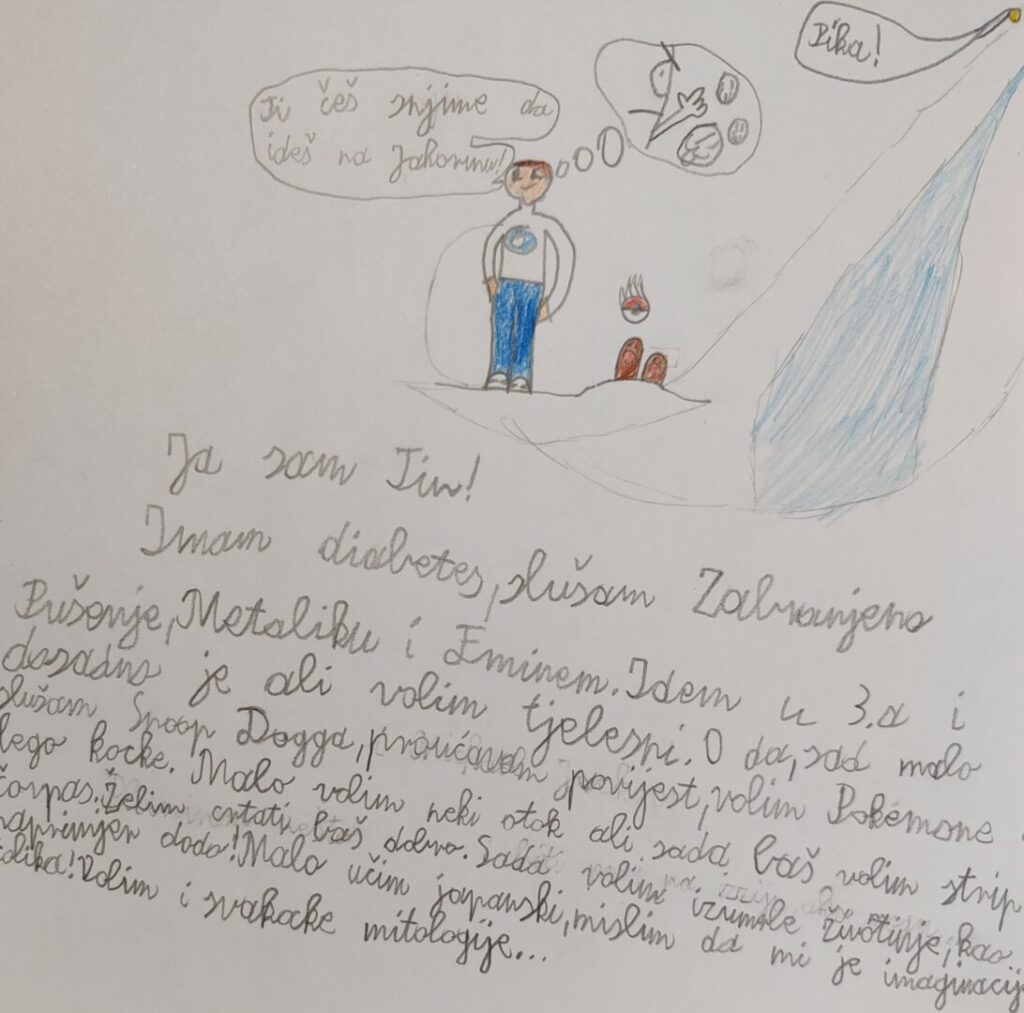 Pika!
Ti češ snjime da
ideš na Jahorinu!
Ja sam Tin!
Imam diabetes, slušam Zabranjeno
Pušenje, Metaliku i Eminem. Idem u 3.a i
dosadno je ali volim tjelesni. O da, sad malo
slušam Snoop Dogga, proučavam povijest, volim Pokémone
lego kocke. Malo volim neki otok ali sada baš volim strip
čorpas. Želim crtati baš dobro. Sada volim izumrle životinje, kao
naprimjer dodo! Malo učim japanski, mislim da mi je imaginacij
olika! Volim i svakocke mitologije...